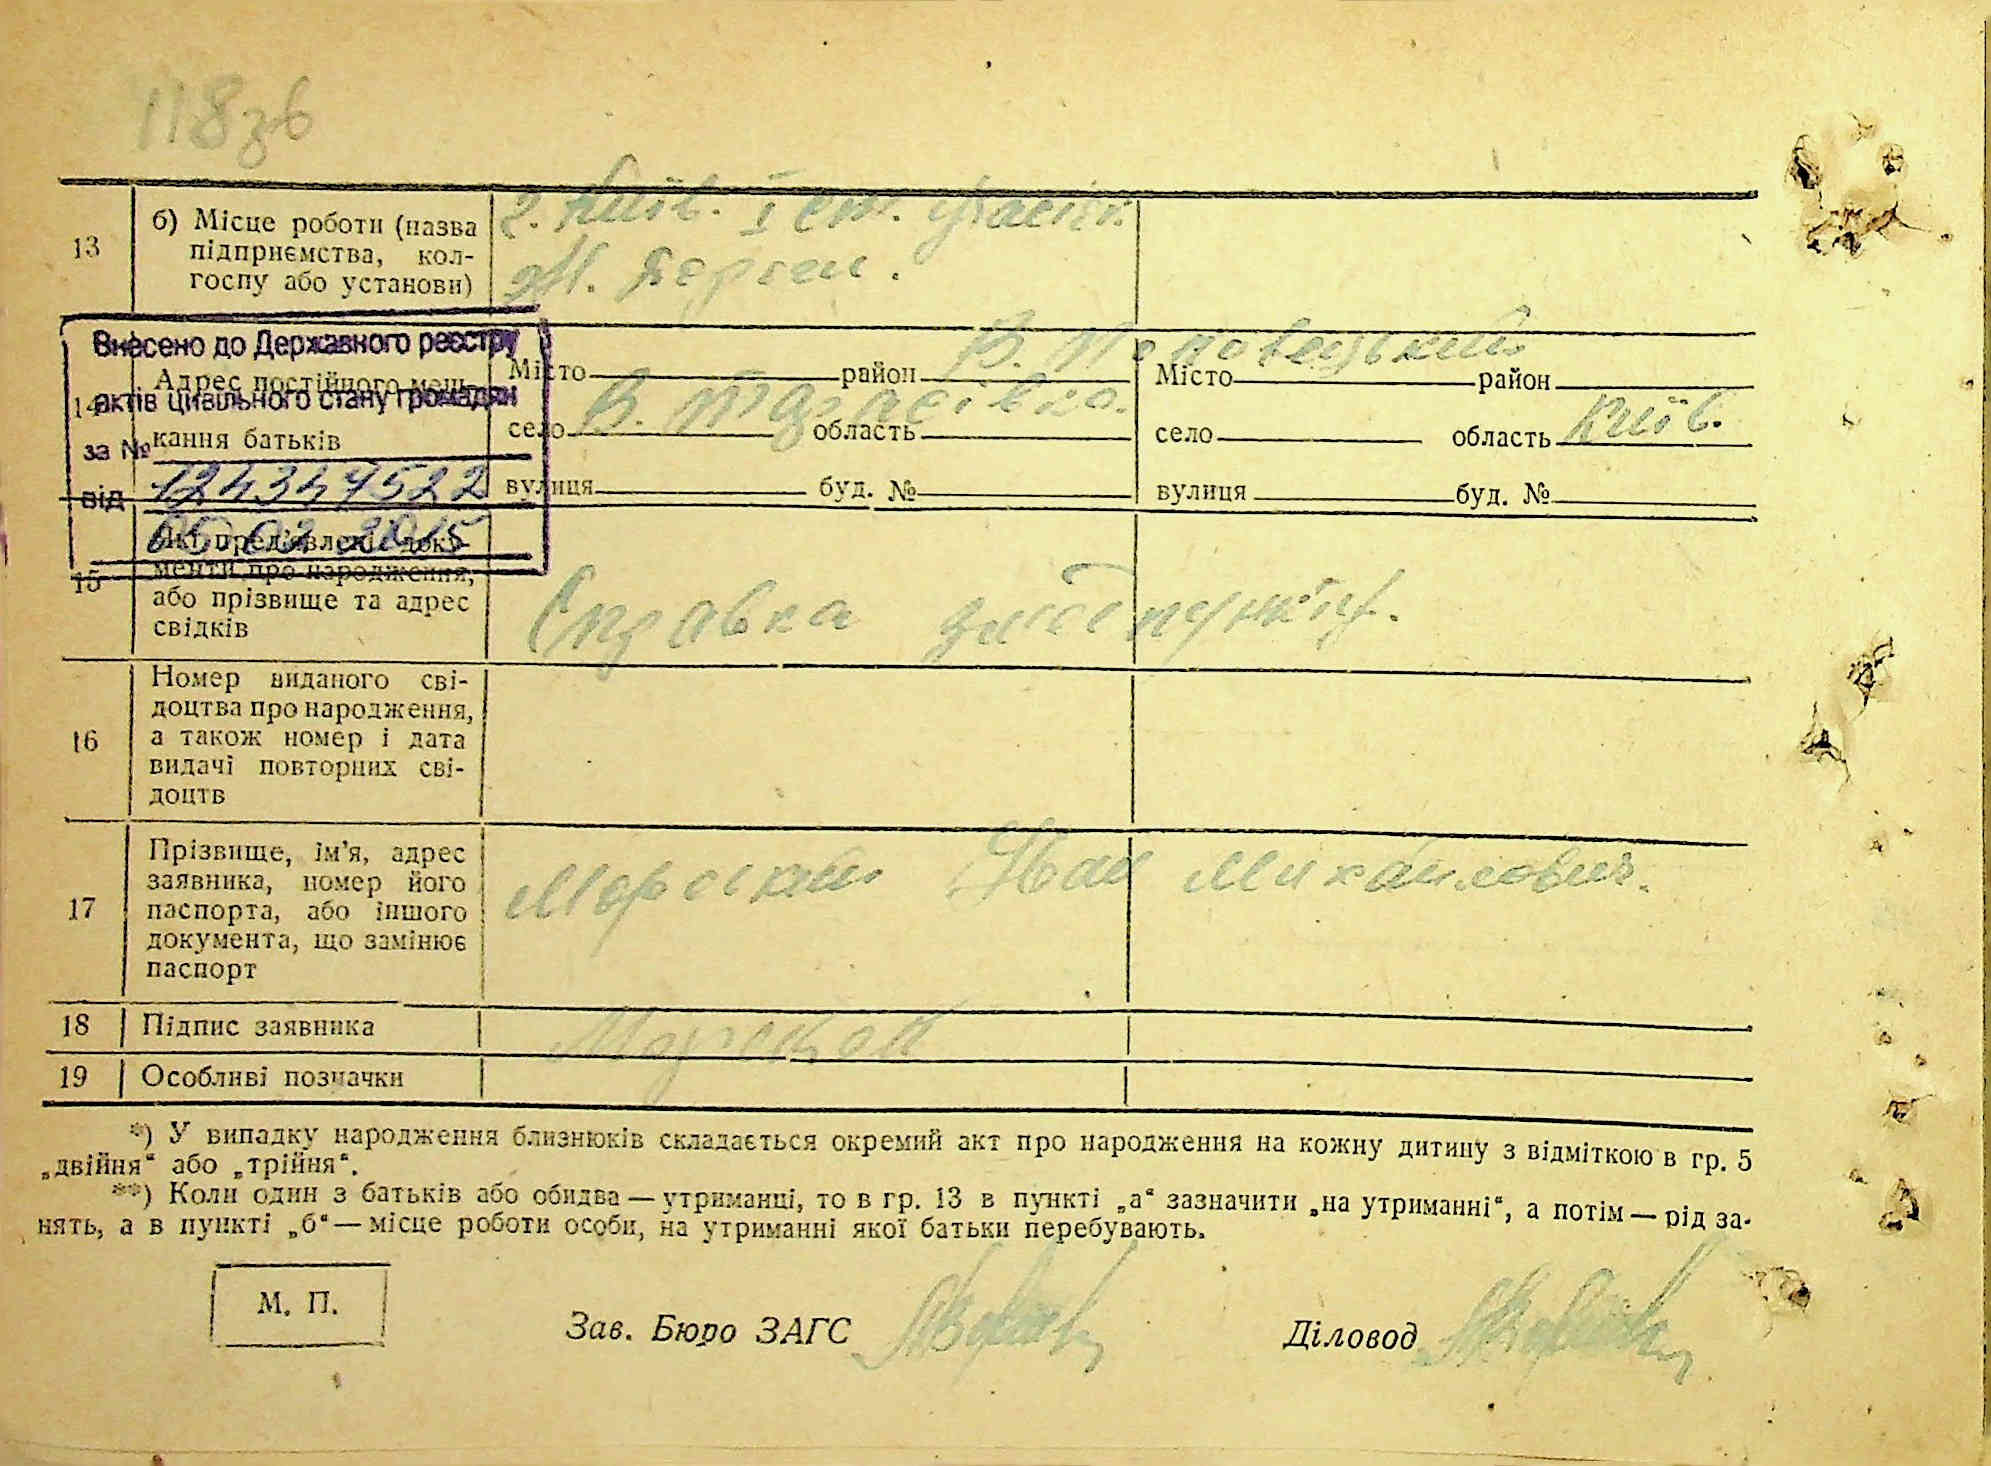 118зв
13
б) Місце роботи (назва
підприємства, кол-
госпу або установи)
г. Київ. І ст.
М.
Внесено до Державного реєстру
актів цивільного стану громадян
за №
124347522
від
2015
14
Адрес постійного меш-
кання батьків
Місто район В.
село В. Тарасівка. область
вулиця буд. №
Місто район
село область Київ.
вулиця буд. №
15
Які пред'явлені доку-
менти про народження,
або прізвище та адрес
свідків
Справка
16
Номер виданого сві-
доцтва про народження,
а також номер і дата
видачі повторних сві-
доцтв
17
Прізвище, ім'я, адрес
заявника, номер його
паспорта, або іншого
документа, що замінює
паспорт
Морський Иван Михайлович.
18
Підпис заявника
19
Особливі позначки
*) У випадку народження близнюків складається окремий акт про народження на кожну дитину з відміткою в гр. 5
„двійня“ або „трійня“.
**) Коли один з батьків або обидва — утриманці, то в гр. 13 в пункті „а“ зазначити „на утриманні“, а потім — рід за-
нять, а в пункті „б“ — місце роботи особи, на утриманні якої батьки перебувають.
М. П.
Зав. Бюро ЗАГС
Діловод